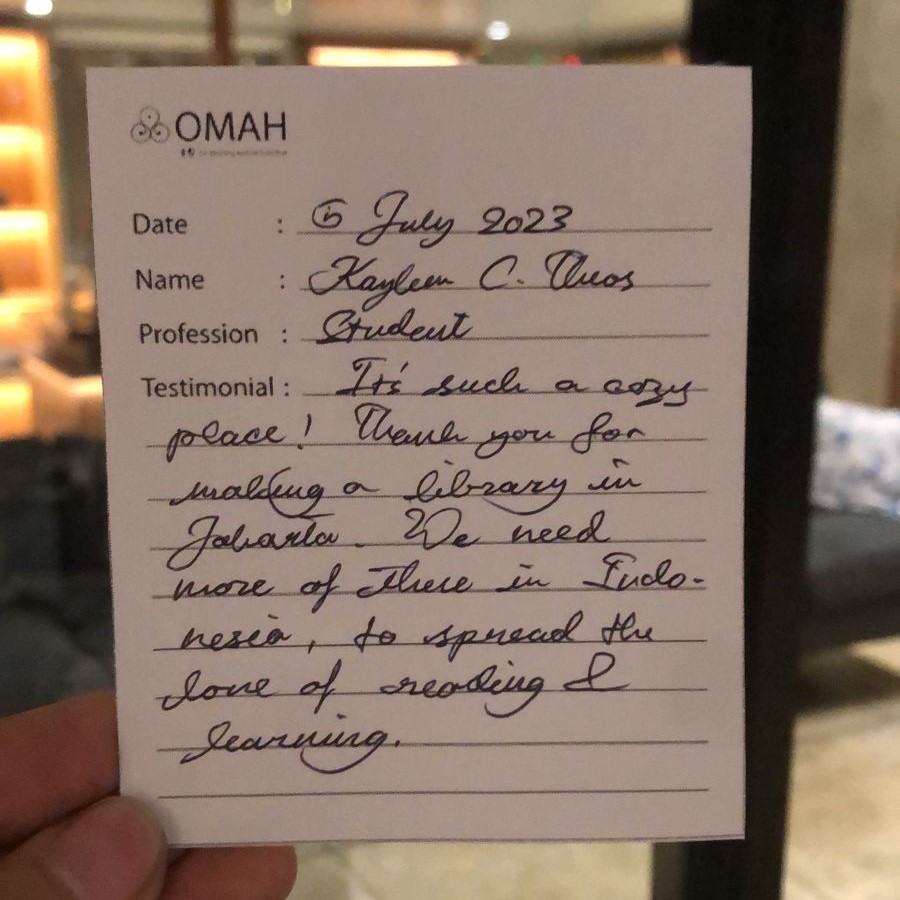 OMAH
Date : 6 July 2023
Name : Kayleen C.
Profession : Student
Testimonial : It's such a cozy
place! Thank you for
making a library in
Jakarta. We need
more of these in Indo-
nesia, to spread the
love of reading &
learning.